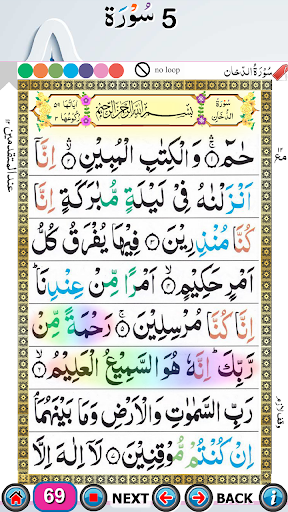 5 سُوْرَة
no loop
سُوْرَةُ الدُّخَان
سُوْرَةُ الدُّخَانِ
بِسْمِ اللّٰهِ الرَّحْمٰنِ الرَّحِيْمِ
حٰمٓ ۝١ وَ الْكِتٰبِ الْمُبِيْنِ ۝٢ اِنَّاۤ
اَنْزَلْنٰهُ فِیْ لَيْلَةٍ مُّبٰرَكَةٍ اِنَّا
كُنَّا مُنْذِرِيْنَ ۝٣ فِيْهَا يُفْرَقُ كُلُّ
اَمْرٍ حَكِيْمٍ ۝٤ اَمْرًا مِّنْ عِنْدِنَا ؕ
اِنَّا كُنَّا مُرْسِلِيْنَ ۝٥ رَحْمَةً مِّنْ
رَّبِّكَ ؕ اِنَّهٗ هُوَ السَّمِيْعُ الْعَلِيْمُ ۝٦
رَبِّ السَّمٰوٰتِ وَ الْاَرْضِ وَ مَا بَيْنَهُمَا ۘ
اِنْ كُنْتُمْ مُّوْقِنِيْنَ ۝٧ لَاۤ اِلٰهَ اِلَّا
عند المتقدمين ١٢
وقف لازم
69 NEXT BACK